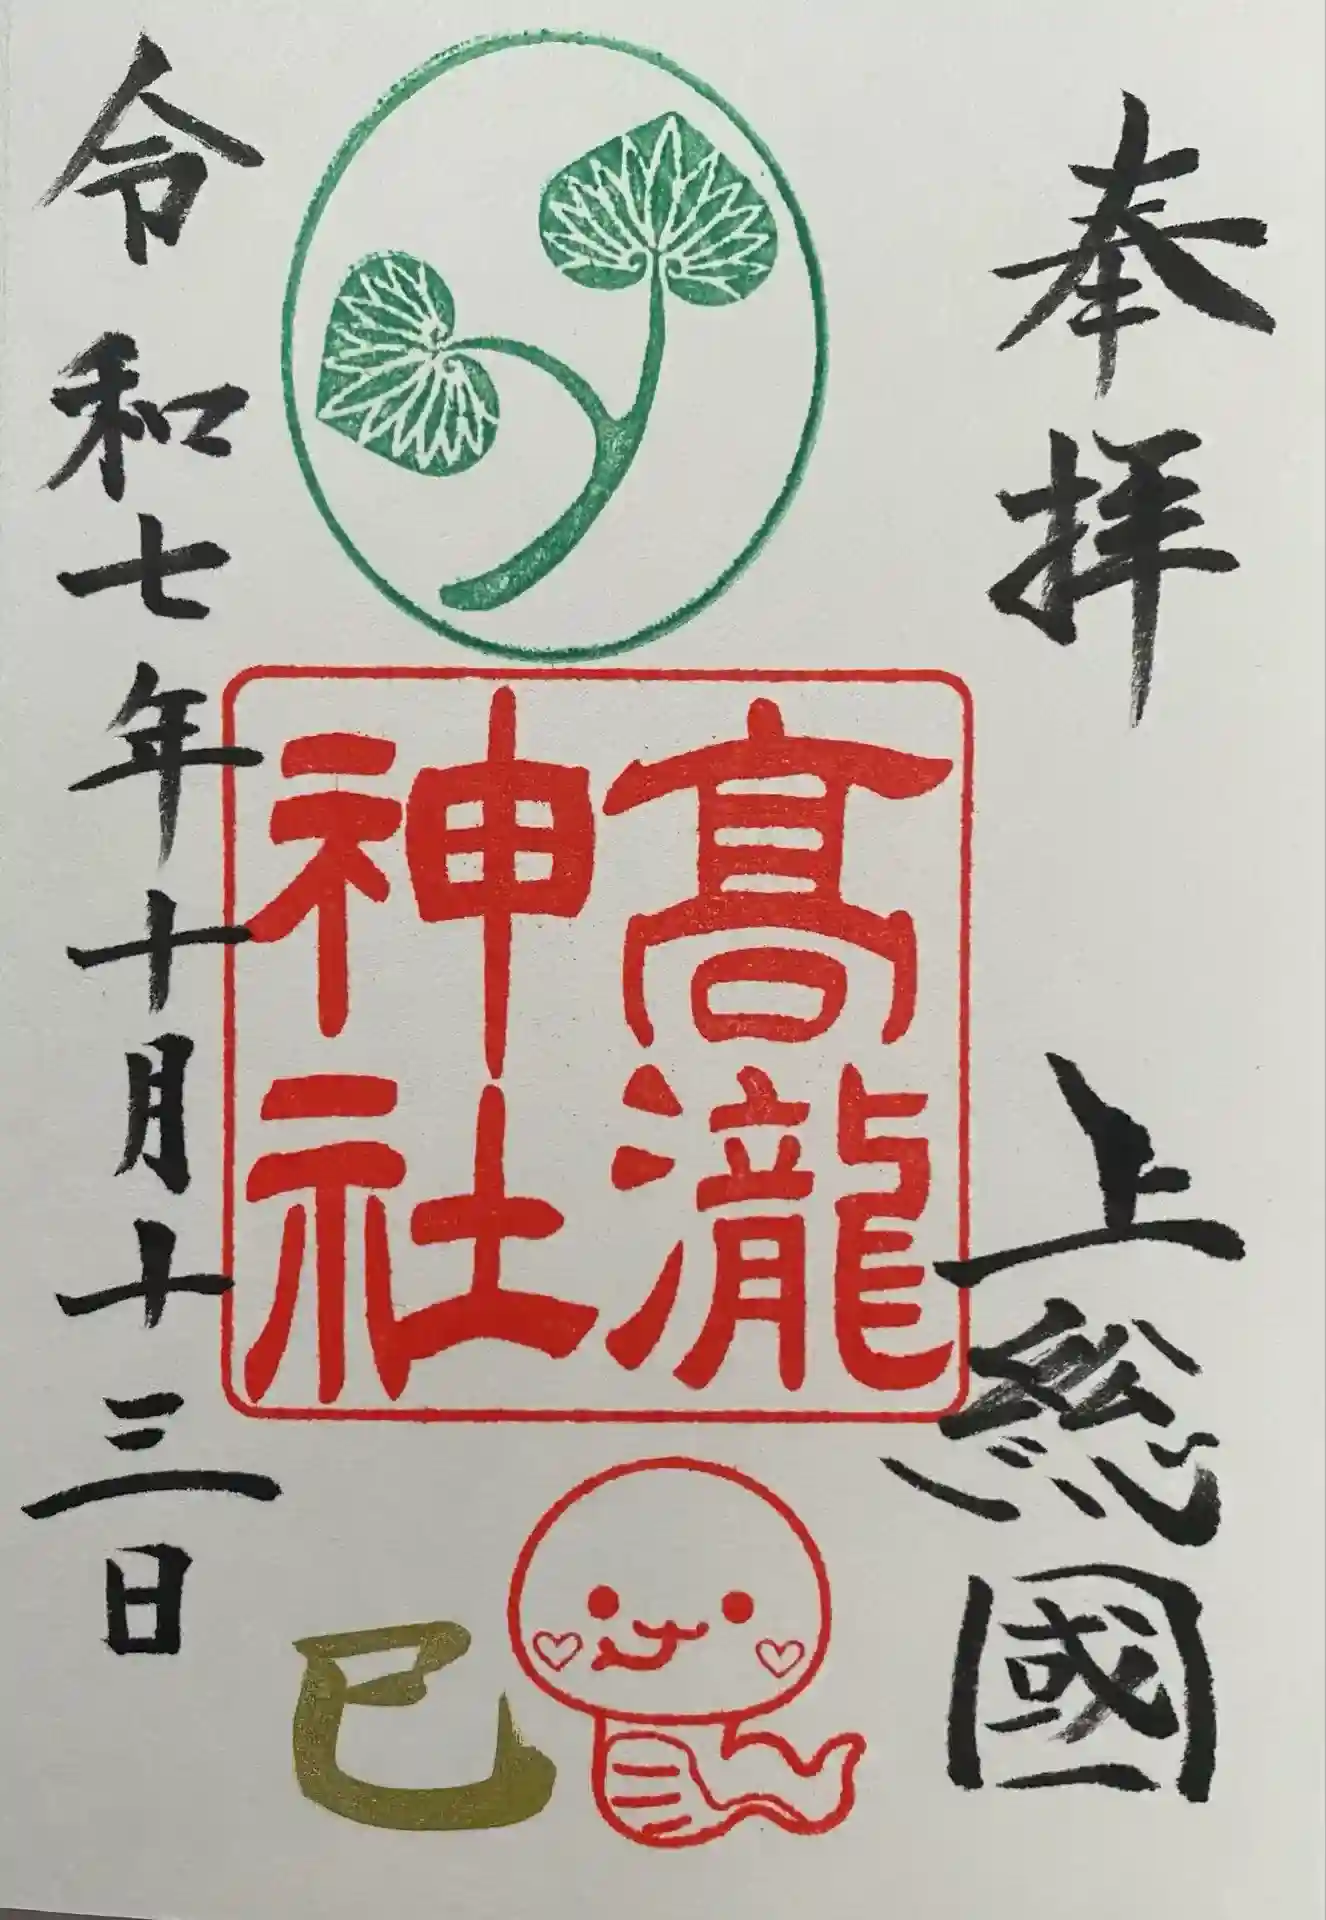 奉拝
上総國
髙瀧
神社
巳
令和七年十月十三日